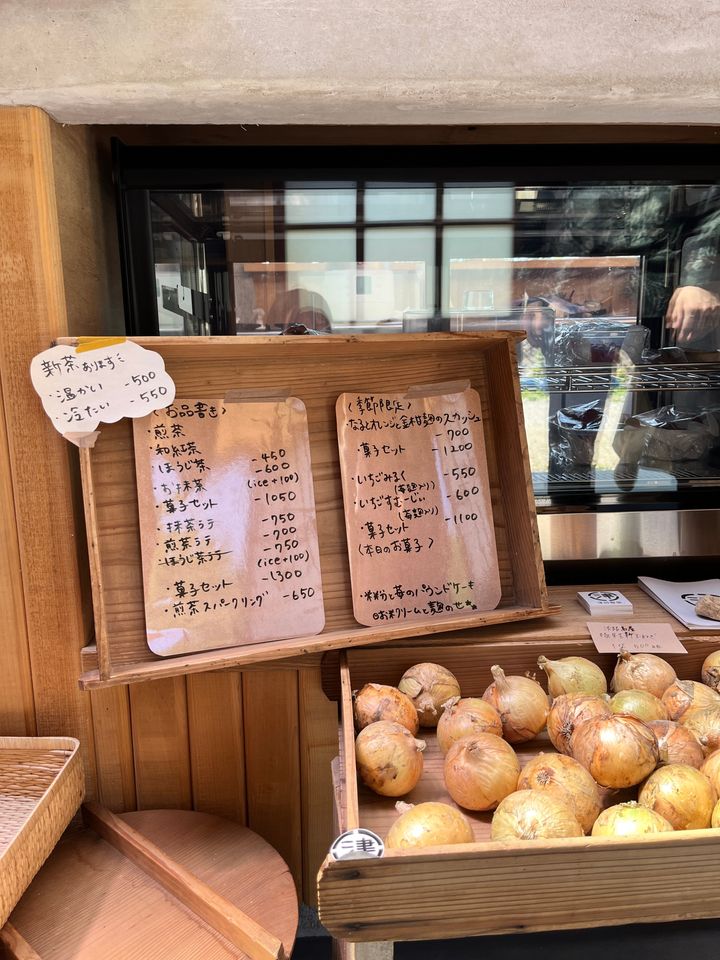 新茶あります
・温かい -500
・冷たい -550
〈お品書き〉
・煎茶
・和紅茶 -450
・ほうじ茶 -600
・お抹茶 (ice+100)
・菓子セット -1050
・抹茶ラテ -750
・煎茶ラテ -700
・ほうじ茶ラテ -750
(ice+100)
・菓子セット -1300
・煎茶スパークリング -650
〈季節限定〉
・なるとオレンジと金柑麹のスカッシュ
-700
・菓子セット -1200
・いちごみるく -550
(苺麹入り)
・いちごすむーじぃ -600
(苺麹入り)
・菓子セット -1100
〈本日のお菓子〉
・米粉と苺のパウンドケーキ
お米クリームと麹のせ
津